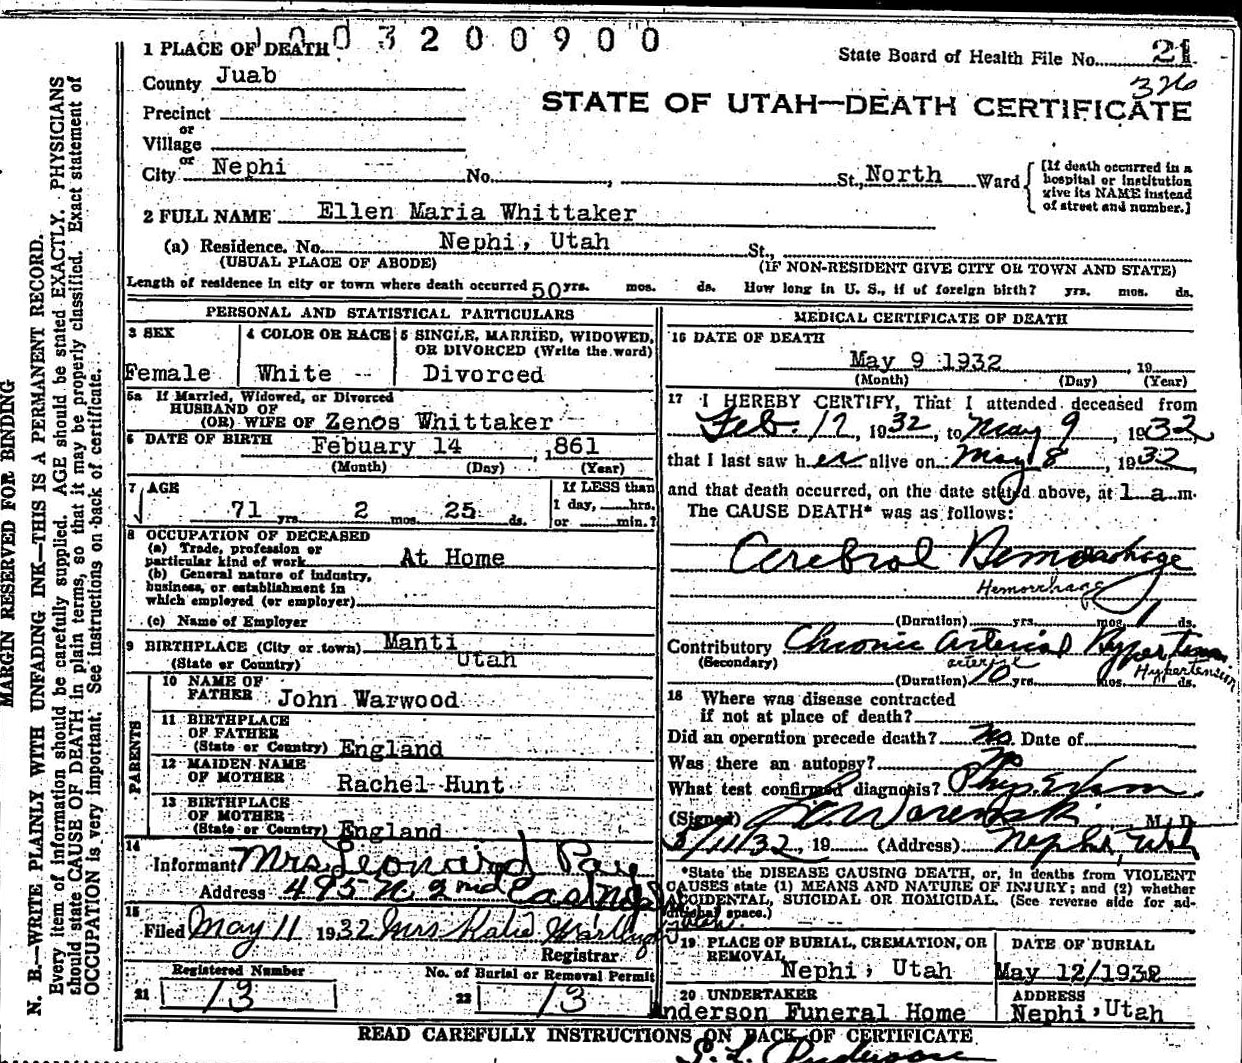 1003200900
1 PLACE OF DEATH
State Board of Health File No. 21
326
County Juab
STATE OF UTAH—DEATH CERTIFICATE
Precinct
or
Village
or
City Nephi No. , St., North Ward
[If death occurred in a
hospital or institution
give its NAME instead
of street and number.]
2 FULL NAME Ellen Maria Whittaker
(a) Residence. No. Nephi, Utah St.,
(USUAL PLACE OF ABODE) (IF NON-RESIDENT GIVE CITY OR TOWN AND STATE)
Length of residence in city or town where death occurred 50 yrs. mos. ds. How long in U. S., if of foreign birth? yrs. mos. ds.
PERSONAL AND STATISTICAL PARTICULARS
3 SEX
Female
4 COLOR OR RACE
White
5 SINGLE, MARRIED, WIDOWED,
OR DIVORCED (Write the word)
Divorced
5a If Married, Widowed, or Divorced
HUSBAND OF
(OR) WIFE OF Zenos Whittaker
6 DATE OF BIRTH Febuary 14 , 1861
(Month) (Day) (Year)
7 AGE
71 yrs. 2 mos. 25 ds.
If LESS than
1 day, hrs.
or min.?
8 OCCUPATION OF DECEASED
(a) Trade, profession or
particular kind of work At Home
(b) General nature of industry,
business, or establishment in
which employed (or employer)
(c) Name of Employer
9 BIRTHPLACE (City or town) Manti
(State or Country) Utah
PARENTS
10 NAME OF
FATHER John Warwood
11 BIRTHPLACE
OF FATHER
(State or Country) England
12 MAIDEN NAME
OF MOTHER Rachel Hunt
13 BIRTHPLACE
OF MOTHER
(State or Country) England
14
Informant Mrs. Leonard Pay
Address 495 N. 2nd East Nephi
Utah.
15
Filed May 11 1932 Mrs Katie
Registrar.
Registered Number
21 13
No. of Burial or Removal Permit
22 13
MEDICAL CERTIFICATE OF DEATH
16 DATE OF DEATH
May 9 1932 , 19
(Month) (Day) (Year)
17 I HEREBY CERTIFY, That I attended deceased from
Feb. 12, 1932, to May 9, 1932
that I last saw her alive on May 8, 1932,
and that death occurred, on the date stated above, at 1 a.m.
The CAUSE DEATH* was as follows:
Cerebral Hemorrhage
Hemorrhage
(Duration) yrs. mos. 1 ds.
Contributory Chronic arterial Hypertension
(Secondary) Hypertension
(Duration) 10 yrs. mos. ds.
18 Where was disease contracted
if not at place of death?
Did an operation precede death? No. Date of
Was there an autopsy? No
What test confirmed diagnosis? Phys. Exam.
(Signed) M. D.
5/11/32, 19 (Address) Nephi, Utah
*State the DISEASE CAUSING DEATH, or, in deaths from VIOLENT
CAUSES state (1) MEANS AND NATURE OF INJURY; and (2) whether
ACCIDENTAL, SUICIDAL OR HOMICIDAL. (See reverse side for ad-
ditional space.)
19 PLACE OF BURIAL, CREMATION, OR
REMOVAL
Nephi, Utah
DATE OF BURIAL
May 12/1932
20 UNDERTAKER
Anderson Funeral Home
ADDRESS
Nephi, Utah
READ CAREFULLY INSTRUCTIONS ON BACK OF CERTIFICATE
Anderson
MARGIN RESERVED FOR BINDING
N. B.—WRITE PLAINLY WITH UNFADING INK—THIS IS A PERMANENT RECORD.
Every item of information should be carefully supplied. AGE should be stated EXACTLY. PHYSICIANS
should state CAUSE OF DEATH in plain terms, so that it may be properly classified. Exact statement of
OCCUPATION is very important. See instructions on back of certificate.